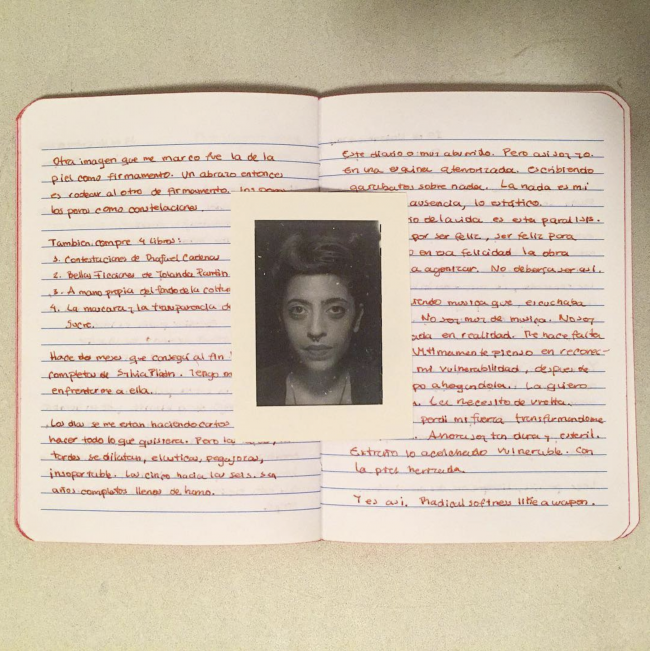 Otra imagen que me marco fue la de la
piel como firmamento. Un abrazo entonces
es rodear al otro de firmamento. Los poros
los poros como constelaciones.
Tambien compre 4 libros:
1. Contestaciones de Rafael Cadenas
2. Bellas Ficciones de Yolanda Pantin
3. A mano propia del fondo de la cultu
4. La mascara y la transparencia de
Sucre.
Hace dos meses que consegui al fin
completos de Silvia Plath. Tengo
enfrentarme a ella.
Los dias se me estan haciendo cortos
hacer todo lo que quisiera. Pero las
tardes se dilatan, elasticas, pegajosas,
insoportable. Las cinco hacia las seis. son
años completos llenos de humo.
Este diario es muy aburrido. Pero asi soy yo.
En una esquina atemorizada, escribiendo
garabatos sobre nada. La nada es mi
ausencia, lo estatico.
so de la vida es esta paralisis.
por ser feliz, ser feliz para
en esa felicidad la obra
a agonizar. No deberia ser asi.
iendo musica que escuchaba
No soy mas de musica. No soy
nada en realidad. Me hace falta
Ultimamente pienso en reconec-
mi vulnerabilidad, despues de
po ahogandola. La quiero
. La necesito de vuelta.
perdi mi fuerza transformandome
. Ahora soy tan dura y esteril.
Extraño lo acolchado vulnerable. Con
la piel
Y es asi. Radical softness like a weapon.